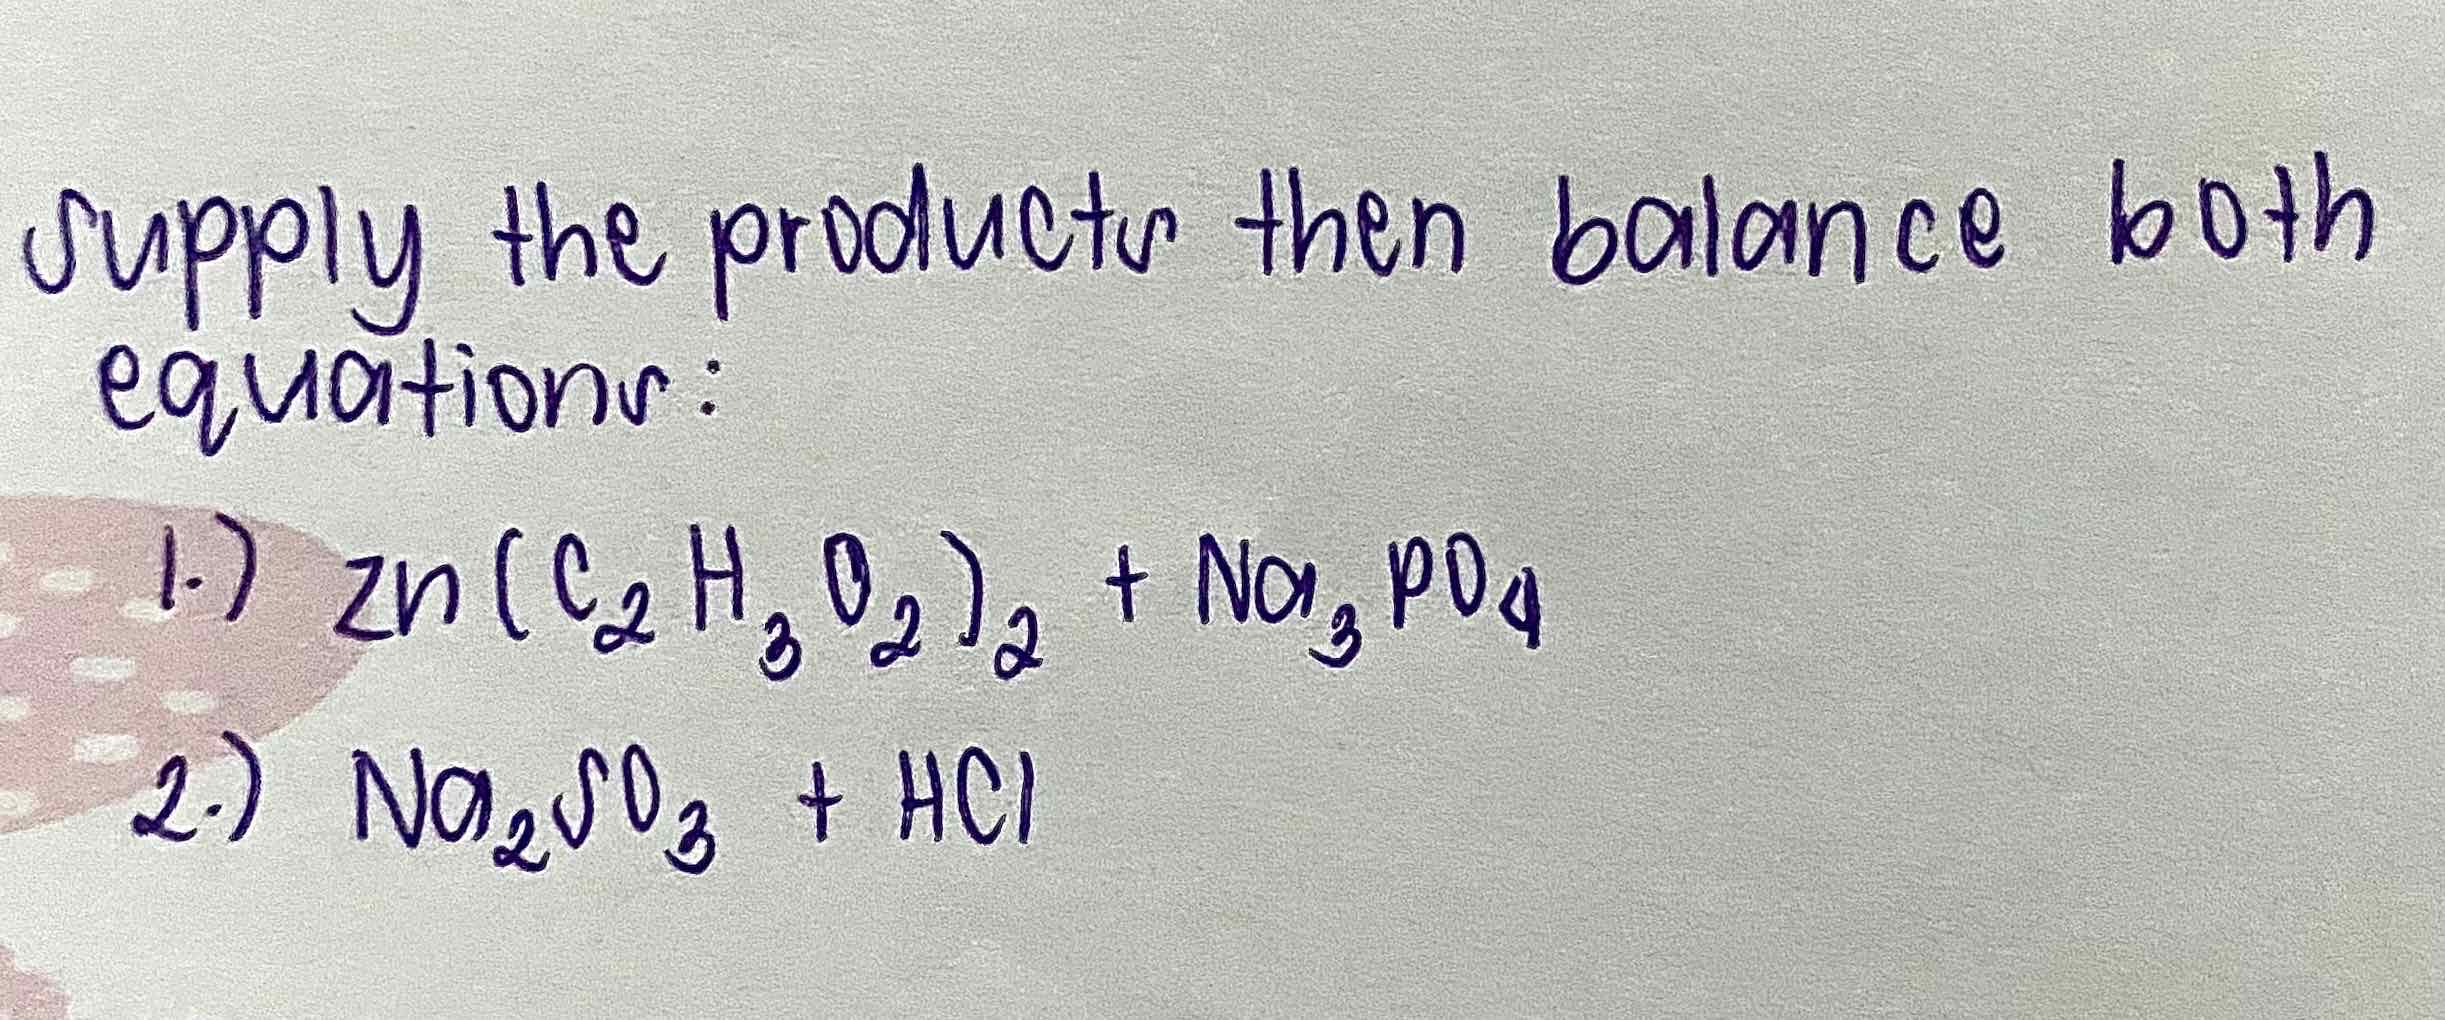 supply the products then balance both
equations:
1.) Zn(C₂H₃O₂)₂ + Na₃PO₄
2.) Na₂SO₃ + HCl